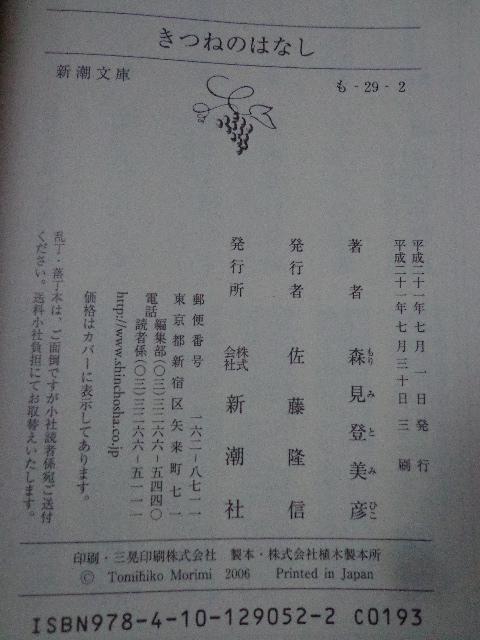 きつねのはなし
新潮文庫
も-29-2
平成二十一年七月一日発行
平成二十一年七月三十日三刷
著者 森見登美彦
もり み と み ひこ
発行者 佐藤隆信
発行所 株式会社 新潮社
郵便番号 一六二-八七一一
東京都新宿区矢来町七一
電話 編集部(〇三)三二六六-五四四〇
読者係(〇三)三二六六-五一一一
http://www.shinchosha.co.jp
価格はカバーに表示してあります。
乱丁・落丁本は、ご面倒ですが小社読者係宛ご送付
ください。送料小社負担にてお取替えいたします。
印刷・三晃印刷株式会社 製本・株式会社植木製本所
© Tomihiko Morimi 2006 Printed in Japan
ISBN978-4-10-129052-2 C0193